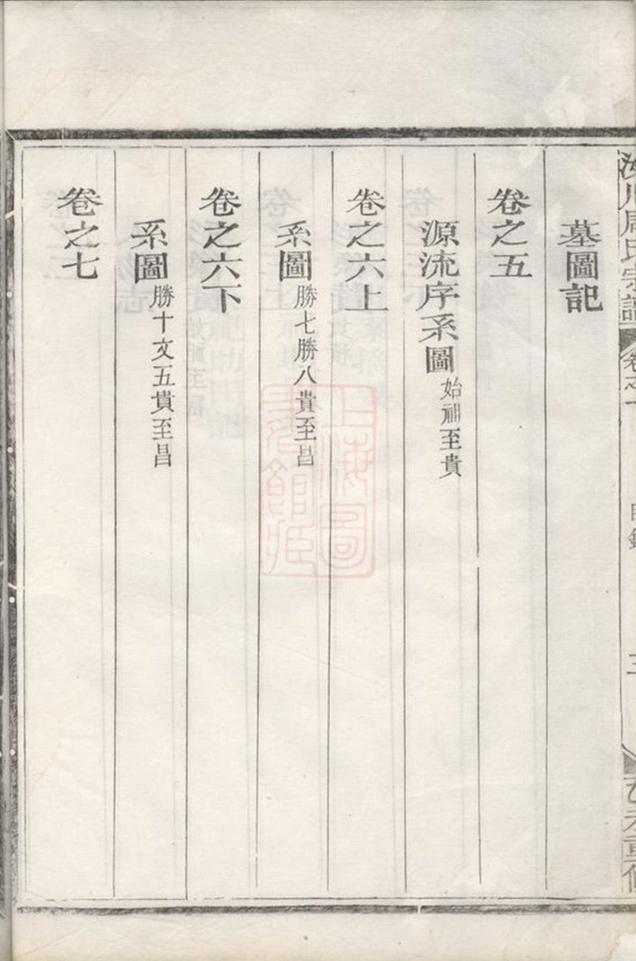 周氏宗譜
目錄
三
墓圖記
卷之五
源流序系圖始祖至貴
卷之六上
系圖勝七勝八貴至昌
卷之六下
系圖勝十文五貴至昌
卷之七
上海圖書館藏